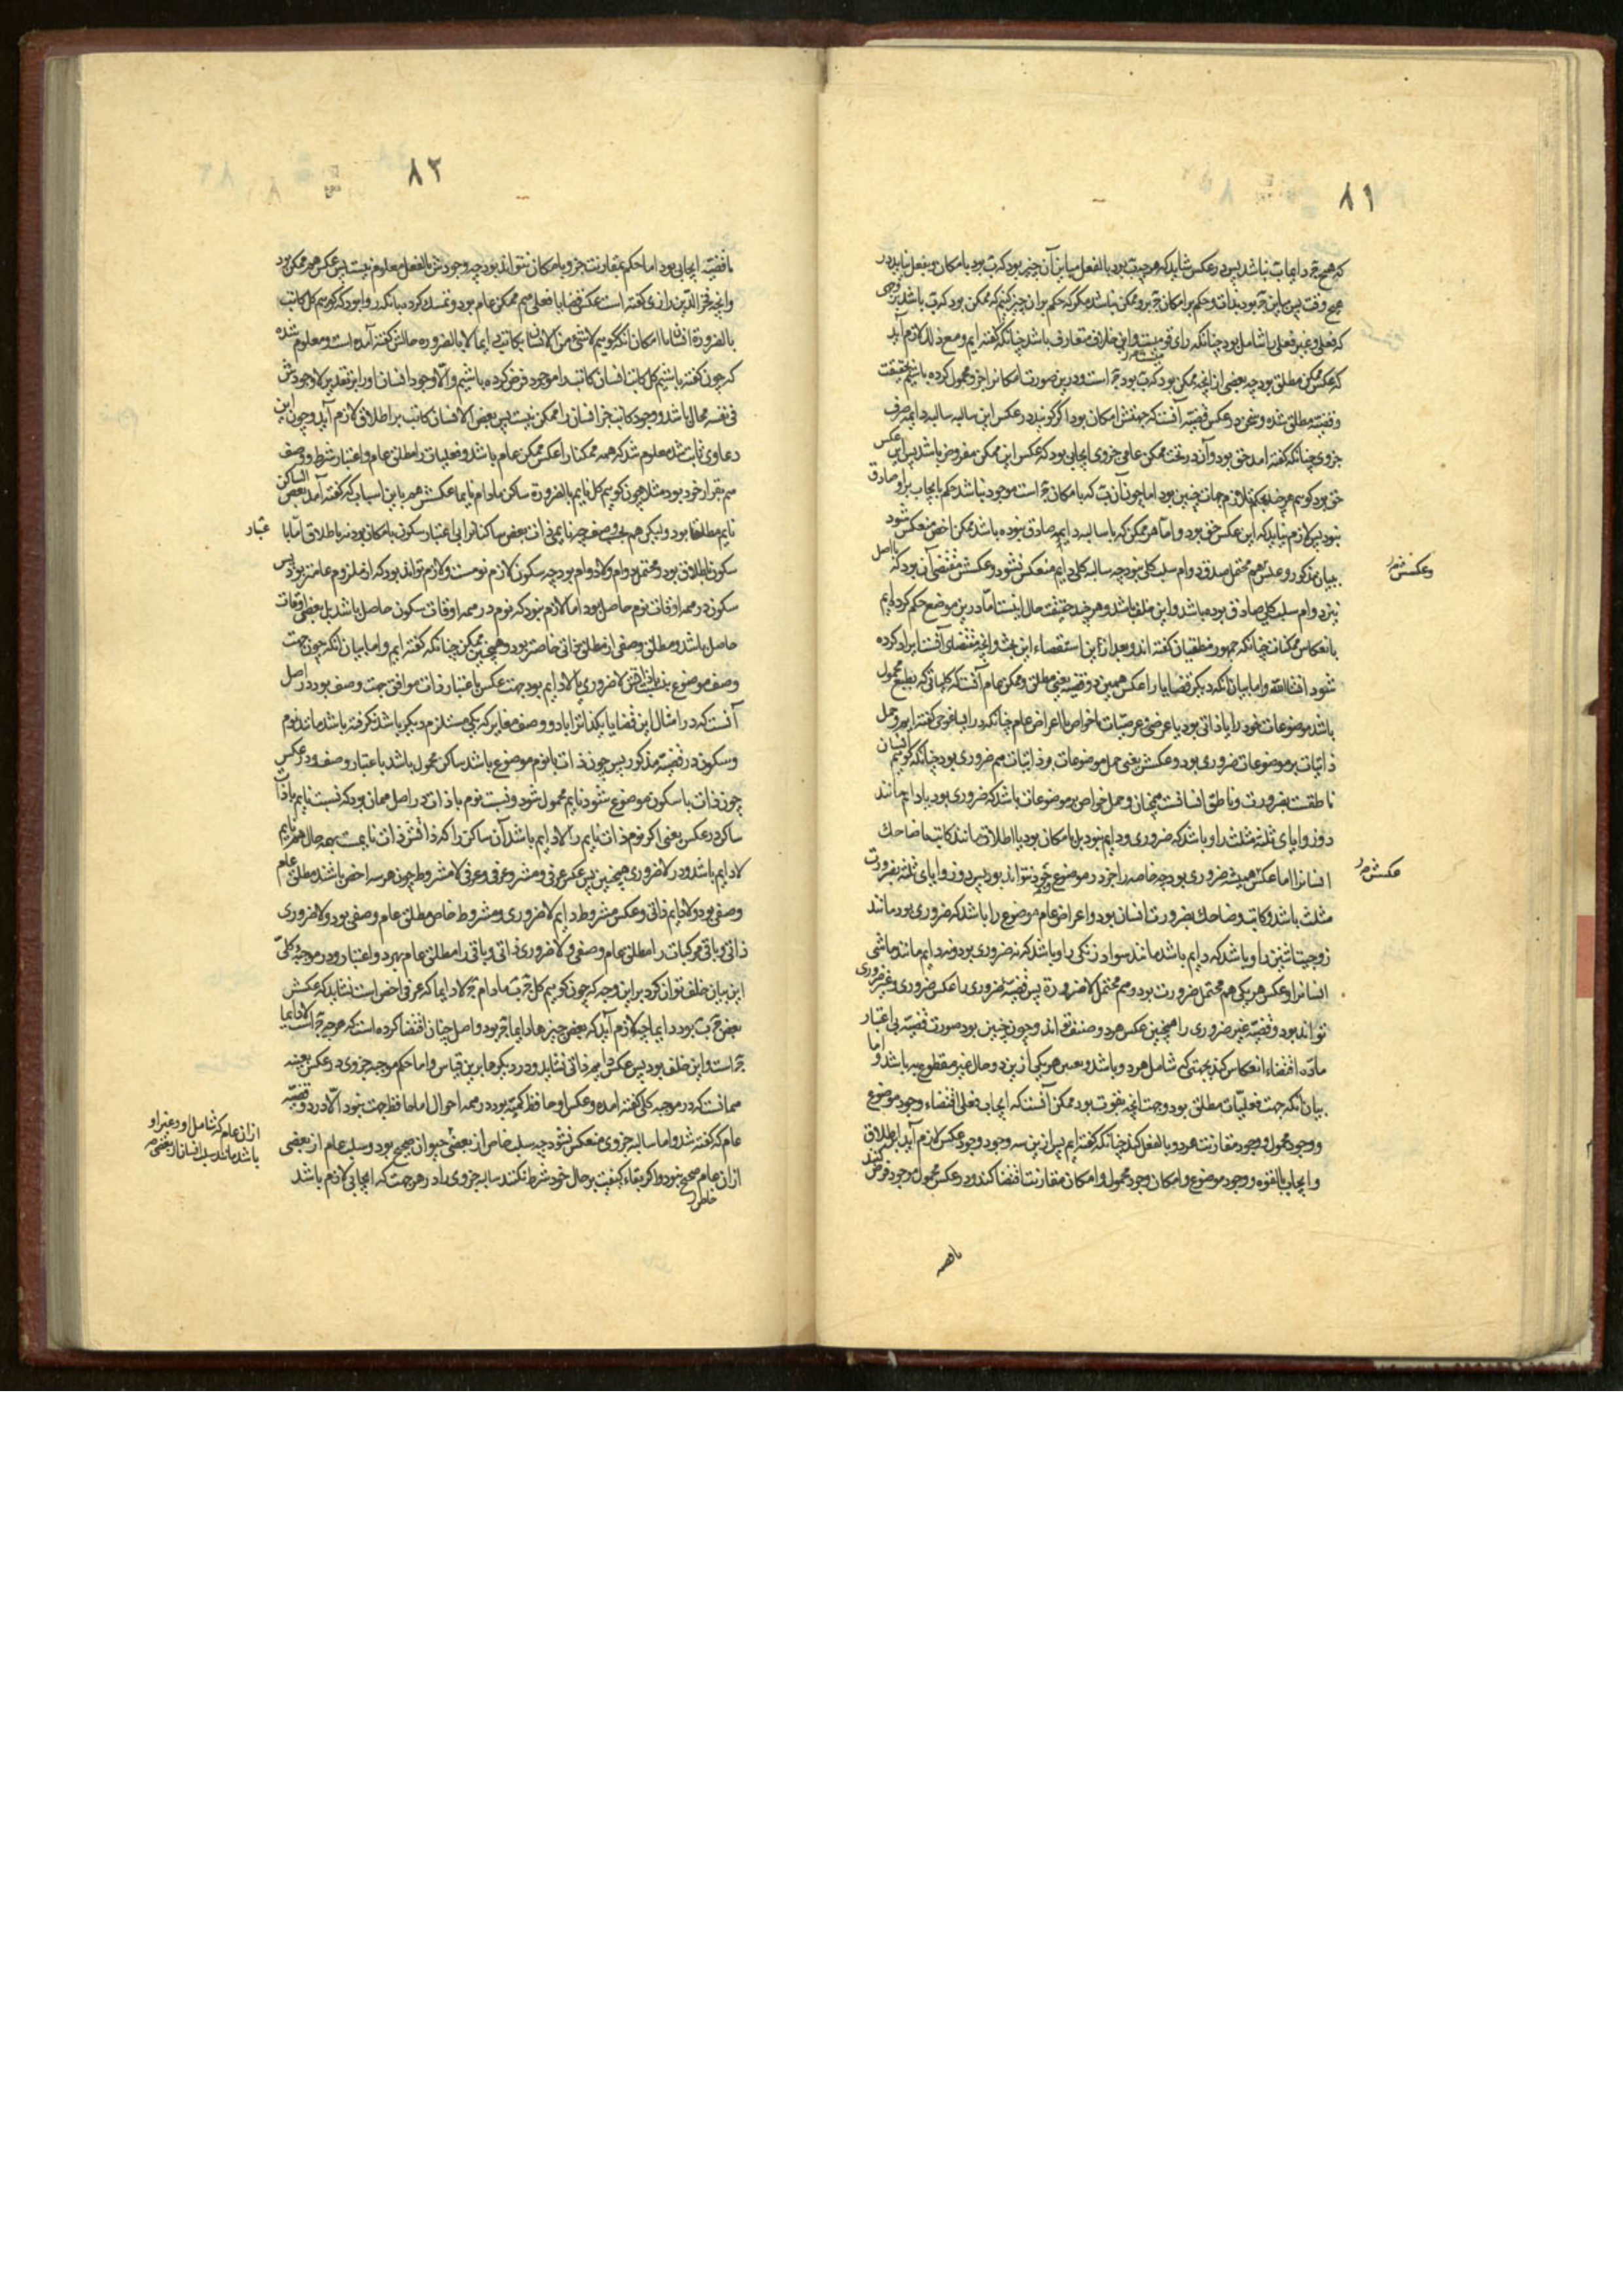 ۸۱
که هیچ ج دایما ب نباشد پس در عکس شاید که هر چه ب بود بالفعل مباین آن چیز بود که ب بود بامکان و بفعل نیاید در
هیچ وقت پس مباین ج بود بذات و حکم بر امکان ج برو ممکن نباشد مگر که حکم بران چیز کنیم که ممکن بود که ب باشد بر وجهی
که فعلی و غیر فعلی را شامل بود چنانکه رای قومیست و این خلاف متعارف باشد چنانکه گفته ایم و مع ذلک لازم آید
که عکس ممکن مطلق بود چه بعضی از انچه ممکن بود که ب بود ج است و درین صورت امکان را جزو محمول کرده باشیم بحقیقت
و قضیه مطلق شده و سخن در عکس قضیه آنست که جهتش امکان بود اگر گویند در عکس این سالبه سالبه دایمه صرف
جزوی چنانکه گفته امد حق بود و آن در تحت ممکن عامی جزوی ایجابی بود که عکس این ممکن مفروض باشد پس این عکس
حق بود گوییم هر چند بحکم تلازم جهات چنین بود اما چون آن ب که بامکان ج است موجود نباشد حکم بایجاب براو صادق
نبود پس لازم نیاید که این عکس حق بود و اما هر ممکن که با سالبه دایمه صادق نبوده باشد ممکن اخص منعکس شود
ببیان مذکور و عکسش هم محتمل صدق دوام سلب کلی نبود چه سالبه کلی دایم منعکس نشود و عکسش مقتضی آن بود که با اصل
نیز دوام سلب کلی صادق بوده باشد و این خلف باشد و هر چند حقیقت حال اینست اما درین موضع حکم کرده ایم
وعکسش
بانعکاس ممکنات چنانکه جمهور منطقیان گفته اند و بعد ازین استقصاء این بحث و انچه مقتضای آنست ایراد کرده
شود انشاالله و اما بیان انکه دیگر قضایا را عکس همین دو قضیه یعنی مطلق و ممکن عام آنست که کلیاتی که بطبع محمول
باشد موضوعات خود را یا ذاتی بود یا عرضی و عرضیات یا خواص یا اعراض عام چنانکه در ایساغوجی گفته ایم و حمل
ذاتیات بر موضوعات ضروری بود و عکسش یعنی حمل موضوعات بر ذاتیات هم ضروری بود چنانکه گوییم انسان
ناطقست بضرورت و ناطق انسانست همچنان و حمل خواص بر موضوعات باشد که ضروری بود یا دایم مانند
دو زوایای ثلثه مثلث را و باشد که ضروری و دایم نبود بل بامکان بود یا اطلاق مانند کاتب یا ضاحک
انسان را اما عکسش همیشه ضروری بود چه خاصه را جز در موضوع خود نتواند بود پس دو زوایای ثلثه بضرورت
عکسش
مثلث باشد و کاتب و ضاحک بضرورت انسان بود و اعراض عام موضوع را باشد که ضروری بود مانند
زوجیت اثنین را و باشد که دایم باشد مانند سواد زنگی را و باشد که نه ضروری بود و نه دایم مانند ماشی
انسان را و عکس هر یکی هم محتمل ضرورت بود و هم محتمل لاضرورة پس قضیه ضروری را عکس ضروری و غیر ضروری
تواند بود و قضیه غیر ضروری را همچنین عکس هر دو صنف تواند و چون چنین بود صورت قضیه بی اعتبار
ماده اقتضاء انعکاس کند بجهتی که شامل هر دو باشد و تعیین هر یکی ازین دو حال غیر مقطوع به باشد و اما
بیان انکه جهت فعلیات مطلق بود و جهت انچه بقوت بود ممکن آنست که ایجاب فعلی اقتضاء وجود موضوع
و وجود محمول و وجود مقارنت هر دو بالفعل کند چنانکه گفته ایم پس ازین سه وجود وجود عکس لازم آید باطلاق
و ایجاب بالقوه وجود موضوع و امکان وجود محمول و امکان مقارنت اقتضا کند و در عکس محمول موجود فرض کنند
۸۲
تا قضیه ایجابی بود اما حکم بمقارنت جز و بامکان نتواند بود چه وجودش بالفعل معلوم نیست پس عکس هم ممکن بود
وانچه فخر الدین رازی گفته است عکس قضایا فعلی هم ممکن عام بود و تمسک کرده بانکه روا بود که گوییم کل کاتب
بالضرورة انسان با امکان انکه گوییم لا شئ من الانسان بکاتب دایما لا بالضروره حالش گفته آمده است و معلوم شده
که چون گفته باشیم کل کاتب انسان کاتب را موجود فرض کرده باشیم و الا وجود انسان او را بر تقدیر لا وجودش
فی نفسه محال باشد و وجود کاتب جز انسان را ممکن نیست پس بعض الانسان کاتب بر اطلاق لازم آید و چون این
دعاوی ثابت شد معلوم شد که همه ممکنات را عکس ممکن عام باشد و فعلیات را مطلق عام و اعتبار شرط و وصف
هم بقرار خود بود مثلا چون گوییم کل نایم بالضرورة ساکن مادام نایما عکسش هم باین اسباب که گفته آمد بعض الساکن
نایم مطلقا بود و لیکن هم بحسب وصف چه نایمی ذات بعض ساکنان را بی اعتبار سکون بامکان بود نه باطلاق اما با
سکون باطلاق بود و محتمل دوام و لا دوام بود چه سکون لازم نومست و لازم تواند بود که از ملزوم عامتر بود پس
سکون در همه اوقات نوم حاصل بود اما لازم نبود که نوم در همه اوقات سکون حاصل باشد بل بعضی اوقات
حاصل باشد و مطلق وصفی از مطلق ذاتی خاصتر بود و همچنین ممکن چنانکه گفته ایم و اما بیان انکه چون جهت
وصف موضوع لا ضروری یا لا دایم بود جهت عکس باعتبار ذات موافق جهت وصف بود در اصل
آنست که در امثال این قضایا یک ذات را باد و وصف مغایر که یکی مستلزم دیگر باشد گرفته باشد مانند نوم
وسکون در قضیه مذکور پس چون ذات با نوم موضوع باشد ساکن محمول باشد باعتبار وصف و در عکس
چون ذات با سکون موضوع شود نایم محمول شود و نسبت نوم با ذات در اصل همان بود که نسبت نایم با ذات
ساکن در عکس یعنی اگر نوم ذات نایم را لا دایم باشد آن ساکن را که ذاتش ذات نایمست بهمه حال هم نایم
لا دایم باشد و در لاضروری همچنین پس عکس عرفی و مشروط عرفی و عرفی لا مشروط چون هر سه اخص باشند مطلق عام
وصفی بود و لا دایم ذاتی و عکس مشروط دایم لا ضروری و مشروط خاص مطلق عام وصفی بود و لا ضروری
ذاتی و باقی مرکبات را مطلق عام وصفی و لا ضروری ذاتی و باقی را مطلق عام بهر دو اعتبار و در موجبه کلی
این بیان خلف توان کرد براین وجه که چون گوییم کل ج ب مادام ج لا دایما که عرفی اخص است نشاید که عکسش
بعض ب ج بود دایما چه لازم آید که بعضی چیزها دایما ج بود و اصل چنان اقتضا کرده است که هر چه ج است لا دایما
ج است و این خلف بود پس عکسش دایم ذاتی نشاید و در دیگرها برین قیاس و اما حکم موجبه جزوی در عکس بعینه
همانست که در موجبه کلی گفته امده و عکس او حافظ کمیت بود در همه احوال اما حافظ جهت نبود الا در دو قضیه
عام که گفته شد و اما سالبه جزوی منعکس نشود چه سلب خاص از بعضی حیوان صحیح بود و سلب عام از بعضی
ازان عام که شامل او و غیر او
باشد مانند سلب انسان از بعضی
ازان خاص صحیح نبود و اگر بقاء کیفیت بر حال خود شرط نکنند سالبه جزوی را در هر جهت که ایجابی لازم باشد